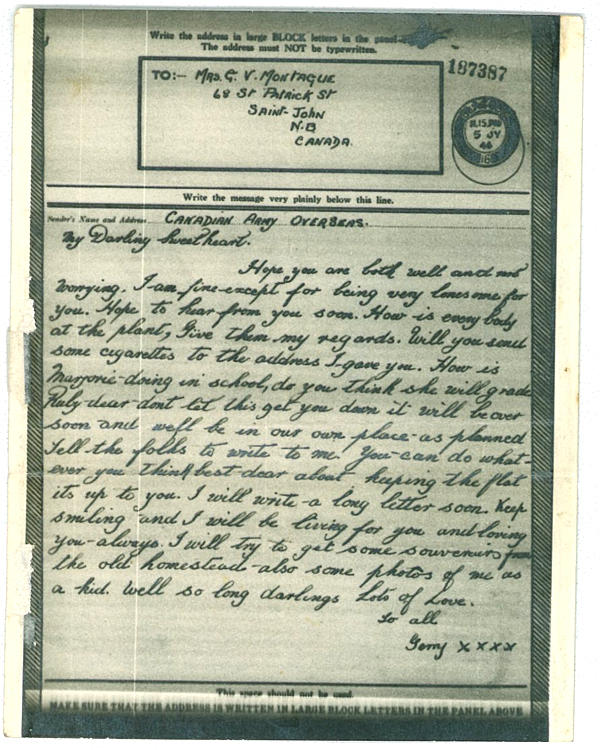 Write the address in large BLOCK letters in the panel
The address must NOT be typewritten.
TO:— MRS. G. V. MONTAGUE
68 ST PATRICK ST
SAINT-JOHN
N-B
CANADA.
187387
5 JY
Write the message very plainly below this line.
Sender's Name and Address CANADIAN ARMY OVERSEAS.
My Darling Sweetheart.
Hope you are both well and not
worrying. I am fine-except for being very lonesome for
you. Hope to hear from you soon. How is everybody
at the plant, Give them my regards. Will you send
some cigarettes to the address I gave you. How is
Marjorie-doing in school, do you think she will grade
Ruby-dear-dont let this get you down it will be over
soon and we'll be in our own place-as planned
Tell the folks to write to me. You-can do what-
ever you think best-dear about-keeping the flat
its up to you. I will write-a long letter soon. Keep
smiling and I will be living for you and-loving
you-always. I will try to get some souvenirs from
the old homestead-also some photos of me as
a kid. Well so long darlings Lots of Love.
to all
Gerry xxxx
This space should not be used.
MAKE SURE THAT THE ADDRESS IS WRITTEN IN LARGE BLOCK LETTERS IN THE PANEL ABOVE